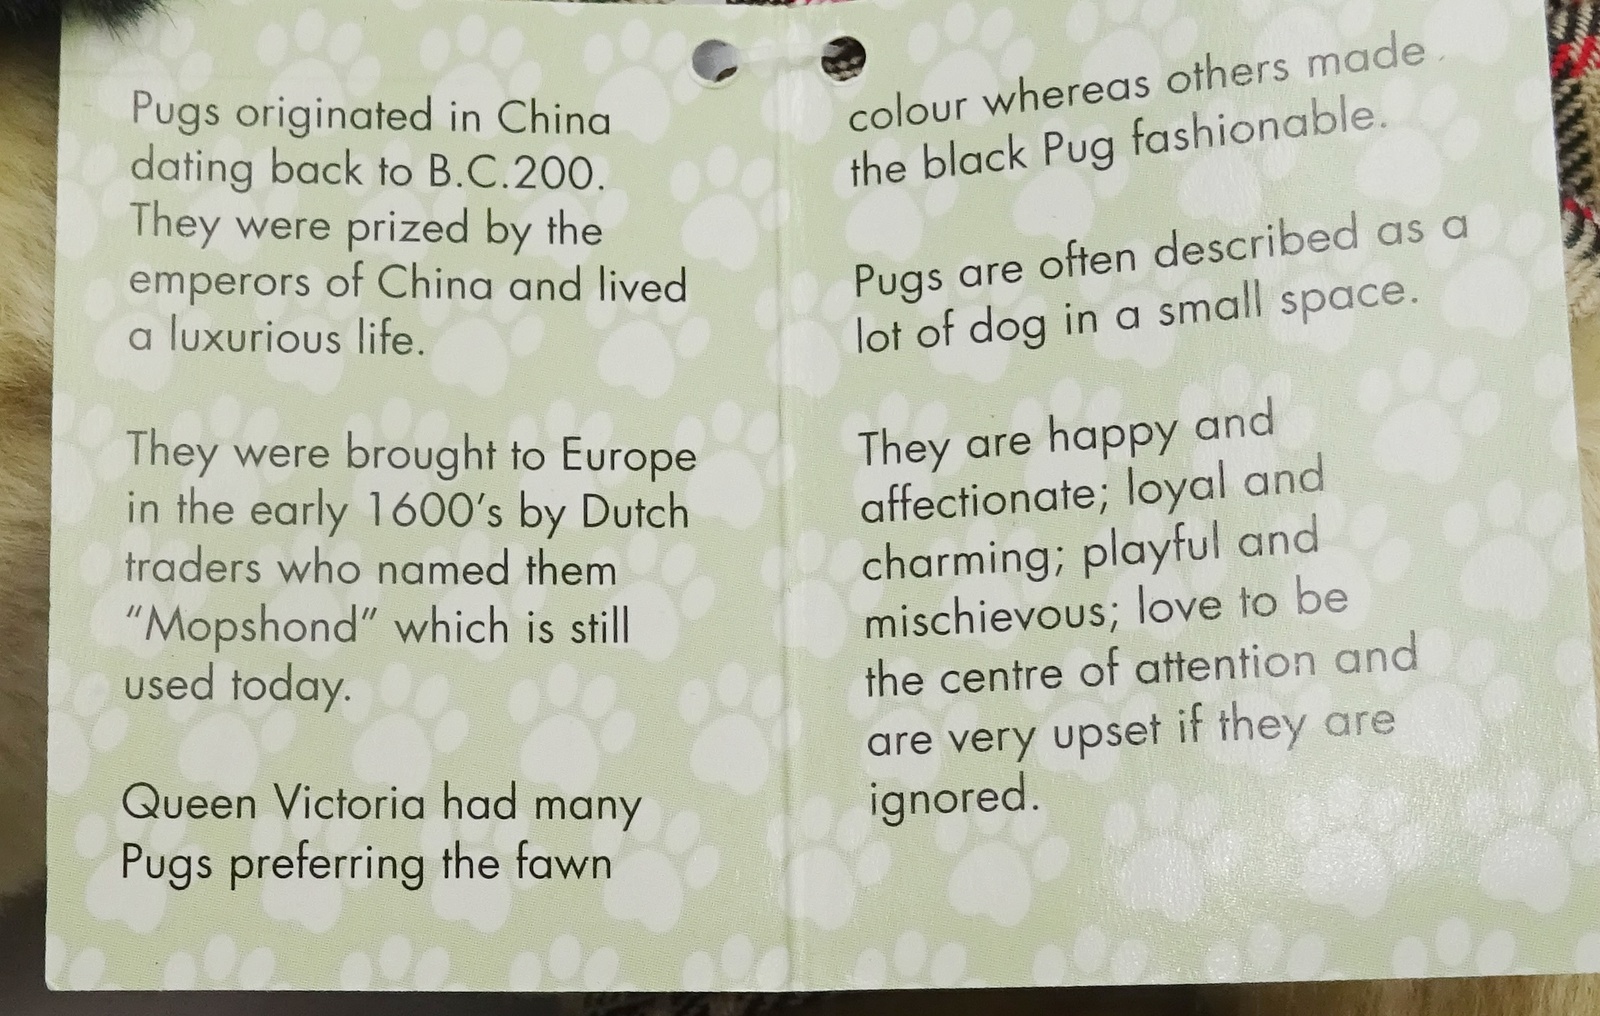 Pugs originated in China
dating back to B.C.200.
They were prized by the
emperors of China and lived
a luxurious life.
They were brought to Europe
in the early 1600's by Dutch
traders who named them
“Mopshond” which is still
used today.
Queen Victoria had many
Pugs preferring the fawn
colour whereas others made
the black Pug fashionable.
Pugs are often described as a
lot of dog in a small space.
They are happy and
affectionate; loyal and
charming; playful and
mischievous; love to be
the centre of attention and
are very upset if they are
ignored.